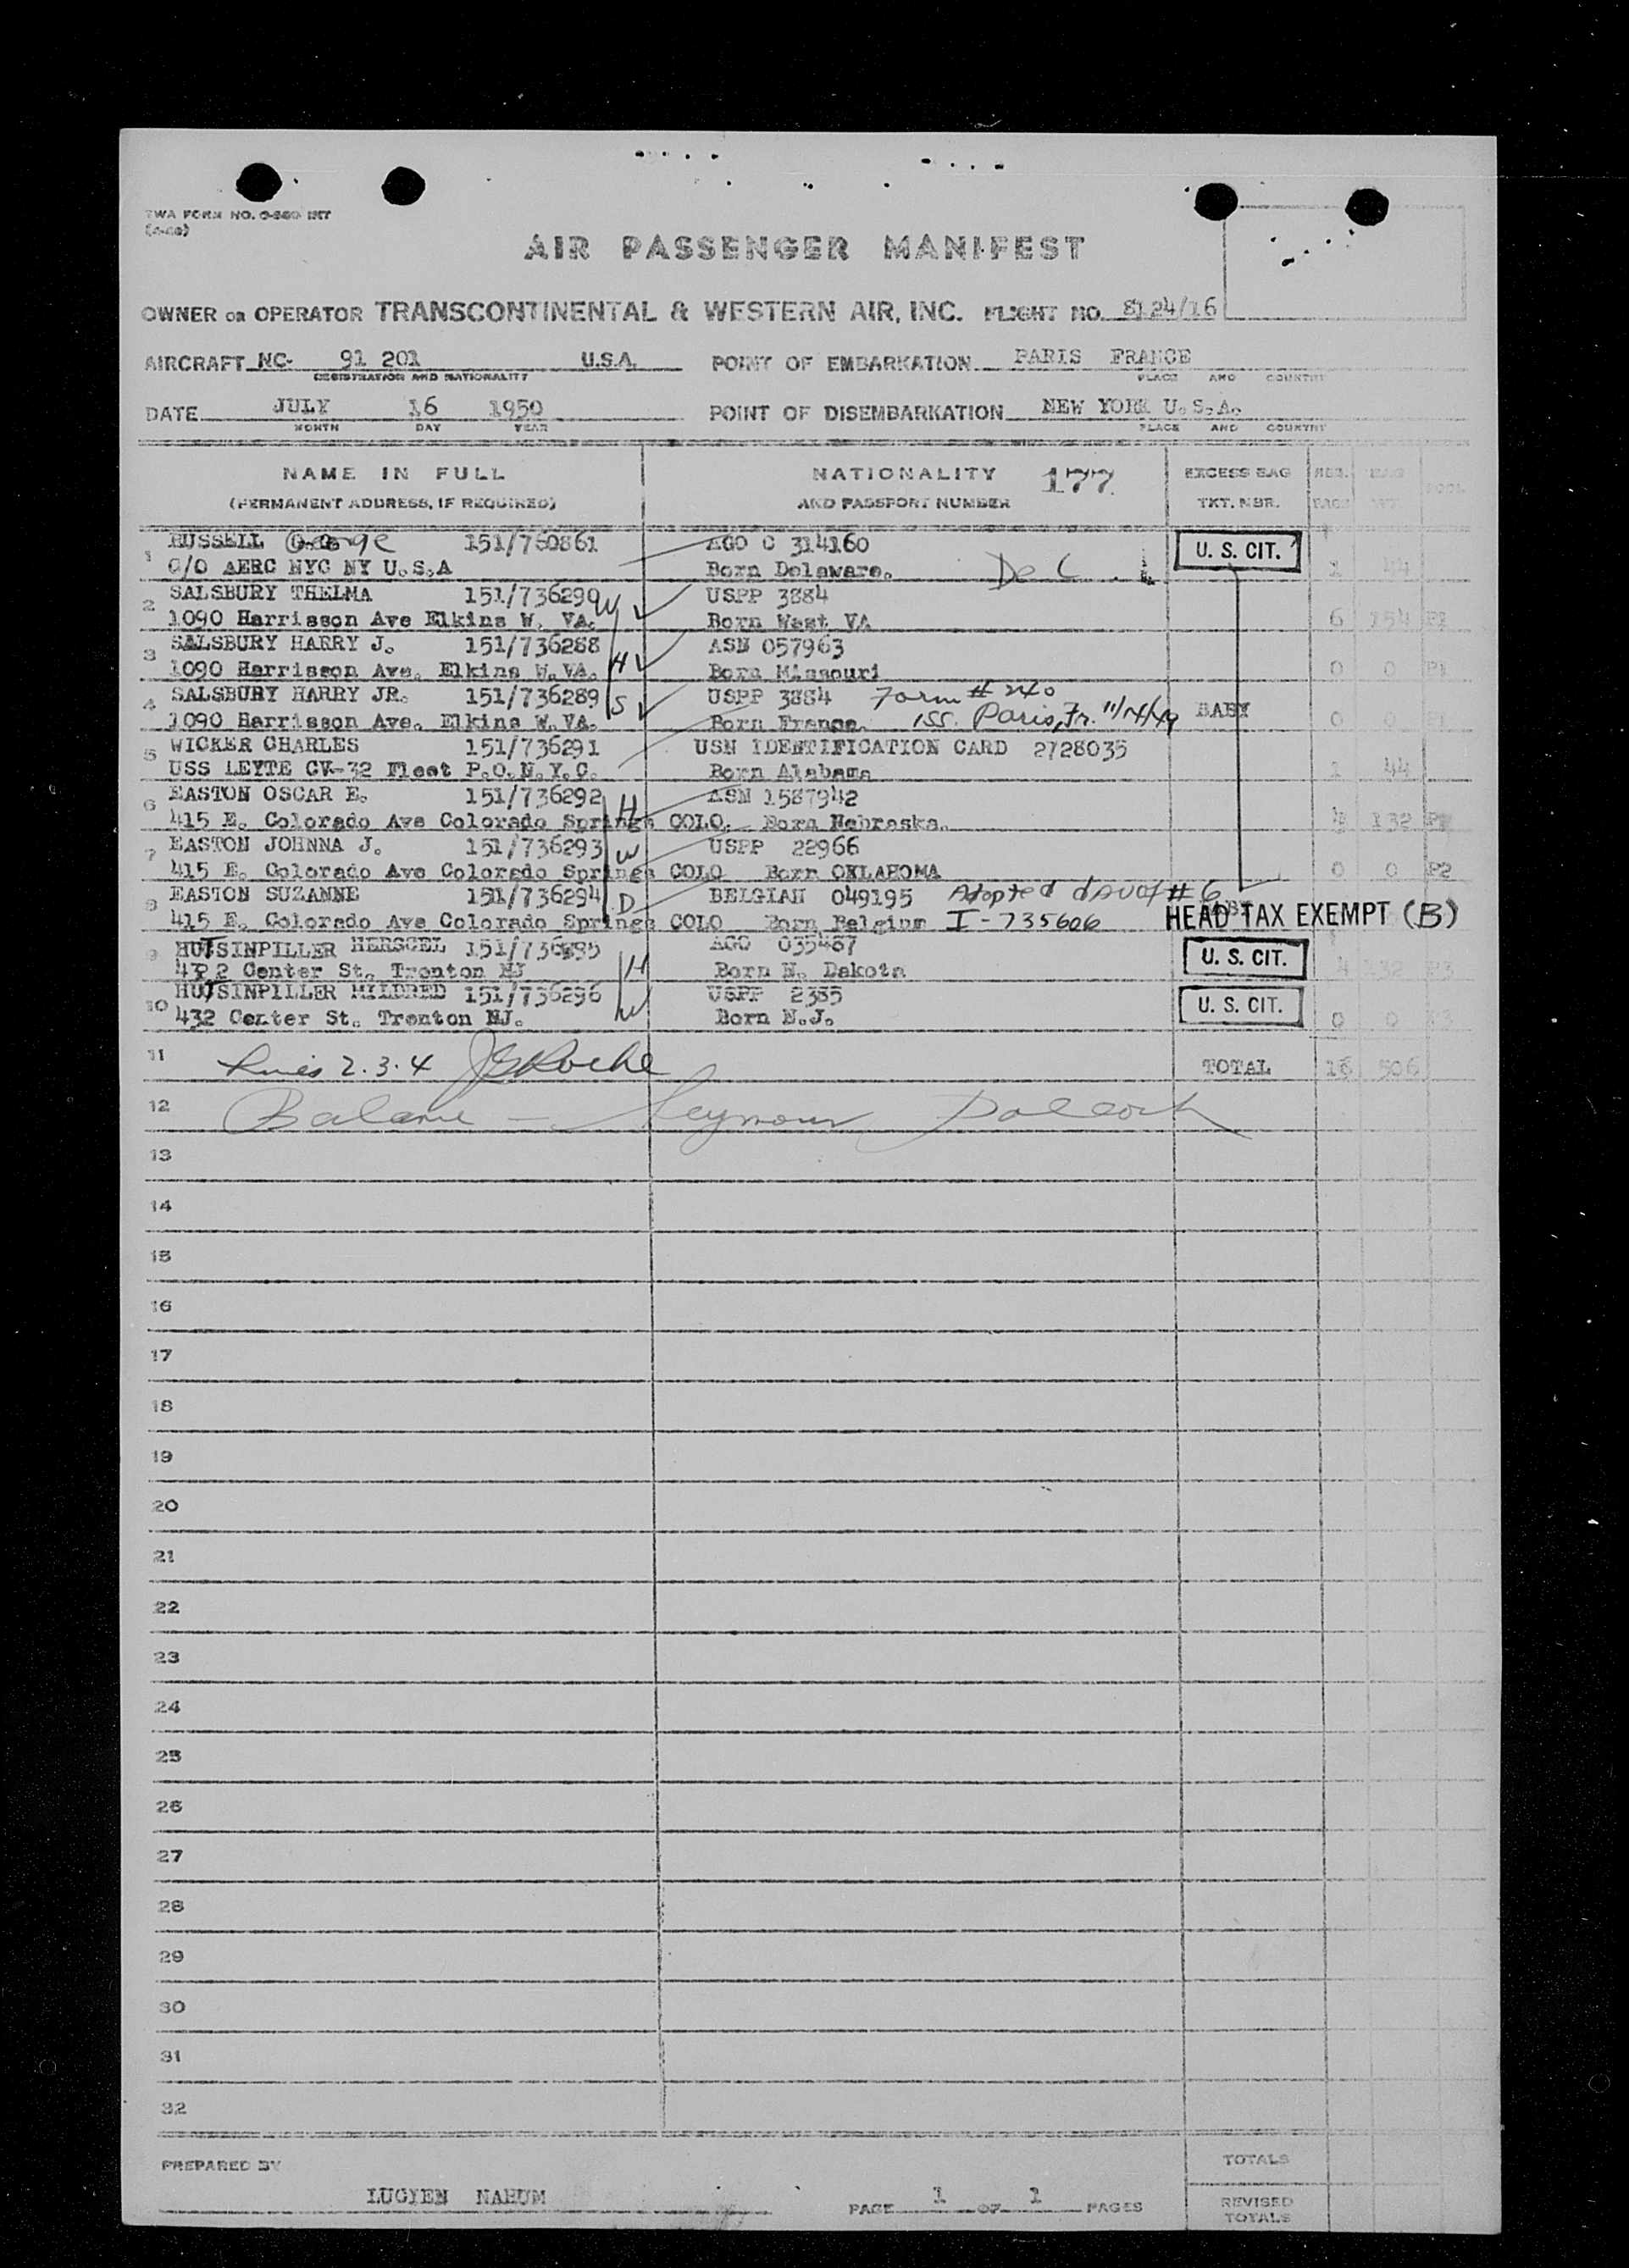 TWA FORM NO.
AIR PASSENGER MANIFEST
OWNER OR OPERATOR TRANSCONTINENTAL & WESTERN AIR, INC. FLIGHT NO. 8124/16
AIRCRAFT NC- 91 201 U.S.A. POINT OF EMBARKATION PARIS FRANCE
REGISTRATION AND NATIONALITY PLACE AND COUNTRY
DATE JULY 16 1950 POINT OF DISEMBARKATION NEW YORK U.S.A.
MONTH DAY YEAR PLACE AND COUNTRY
NAME IN FULL NATIONALITY 177 EXCESS BAG
(PERMANENT ADDRESS, IF REQUIRED) AND PASSPORT NUMBER TKT. NBR.
1 RUSSELL George 151/760861 AGO C 314160 U. S. CIT.
C/O AERC NYC NY U.S.A Born Delaware. 1 44
2 SALSBURY THELMA 151/736290 W USPP 3884
1090 Harrisson Ave Elkins W. VA. Born West VA 6 154 P1
3 SALSBURY HARRY J. 151/736288 ASN 057963
1090 Harrisson Ave. Elkins W.VA. H Born Missouri 0 0 P1
4 SALSBURY HARRY JR. 151/736289 S USPP 3884 Form # 240
1090 Harrisson Ave. Elkins W.VA. Born France. iss. Paris, Fr. 11/14/49 BABY 0 0 P1
5 WICKER CHARLES 151/736291 USN IDENTIFICATION CARD 2728035
USS LEYTE CV-32 Fleet P.O.N.Y.C. Born Alabama 1 44
6 EASTON OSCAR E. 151/736292 H ASN 1587942
415 E. Colorado Ave Colorado Springs COLO. Born Nebraska. 4 132 P2
7 EASTON JOHNNA J. 151/736293 W USPP 22966
415 E. Colorado Ave Colorado Springs COLO Born OKLAHOMA 0 0 P2
8 EASTON SUZANNE 151/736294 D BELGIAN 049195 Adopted dau of # 6
415 E. Colorado Ave Colorado Springs COLO Born Belgium I-735606 HEAD TAX EXEMPT (B)
9 HUTSINPILLER HERSCEL 151/736295 AGO 035487 U. S. CIT.
432 Center St. Trenton NJ H Born N. Dakota 4 132 P3
10 HUTSINPILLER MILDRED 151/736296 USPP 2385 U. S. CIT.
432 Center St. Trenton NJ. W Born N.J. 0 0 P3
11 Lines 2.3.4 JGRoche TOTAL 16 506
12 Balance - Seymour
13
14
15
16
17
18
19
20
21
22
23
24
25
26
27
28
29
30
31
32
PREPARED BY TOTALS
LUCIEN NAHUM PAGE 1 OF 1 PAGES REVISED
TOTALS